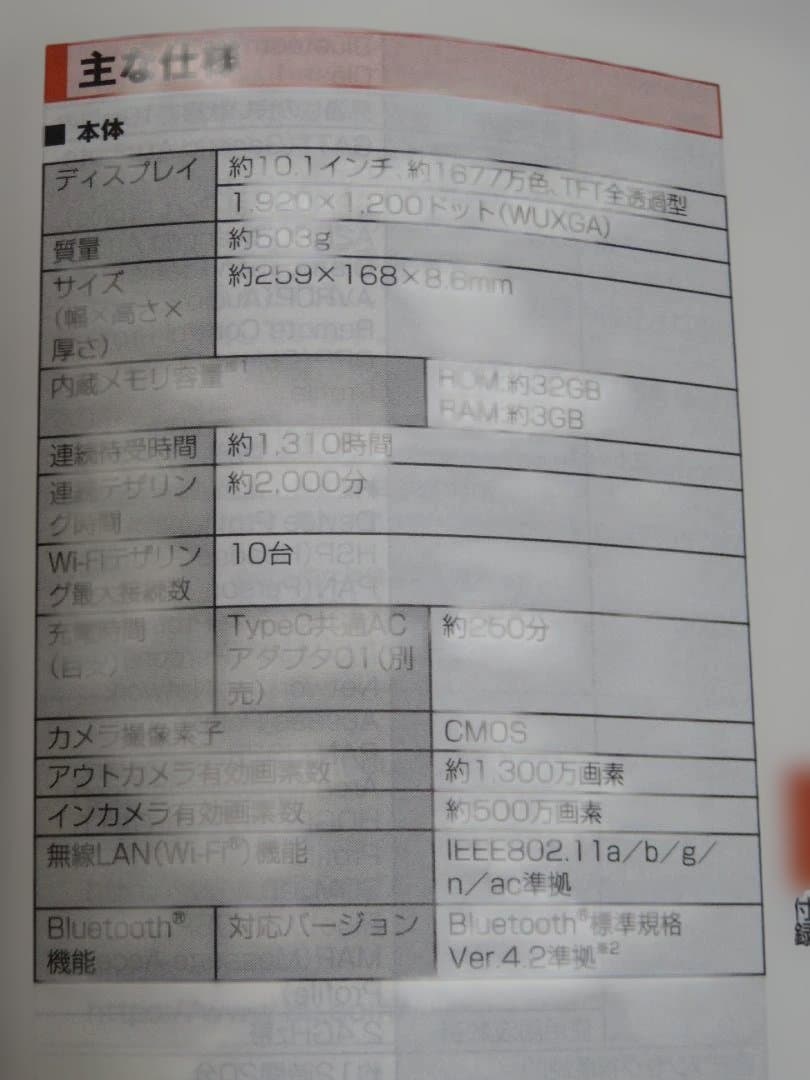 主な仕様
■ 本体
ディスプレイ
約10.1インチ、約1677万色、TFT全透過型
1,920×1,200ドット(WUXGA)
質量
約503g
サイズ
(幅×高さ×
厚さ)
約259×168×8.6mm
内蔵メモリ容量※1
ROM:約32GB
RAM:約3GB
連続待受時間
約1,310時間
連続テザリン
グ時間
約2,000分
Wi-Fiテザリン
グ最大接続数
10台
充電時間
(目安)
TypeC共通AC
アダプタ01(別
売)
約250分
カメラ撮像素子
CMOS
アウトカメラ有効画素数
約1,300万画素
インカメラ有効画素数
約500万画素
無線LAN(Wi-Fi®)機能
IEEE802.11a/b/g/
n/ac準拠
Bluetooth®
機能
対応バージョン
Bluetooth®標準規格
Ver.4.2準拠※2
付録